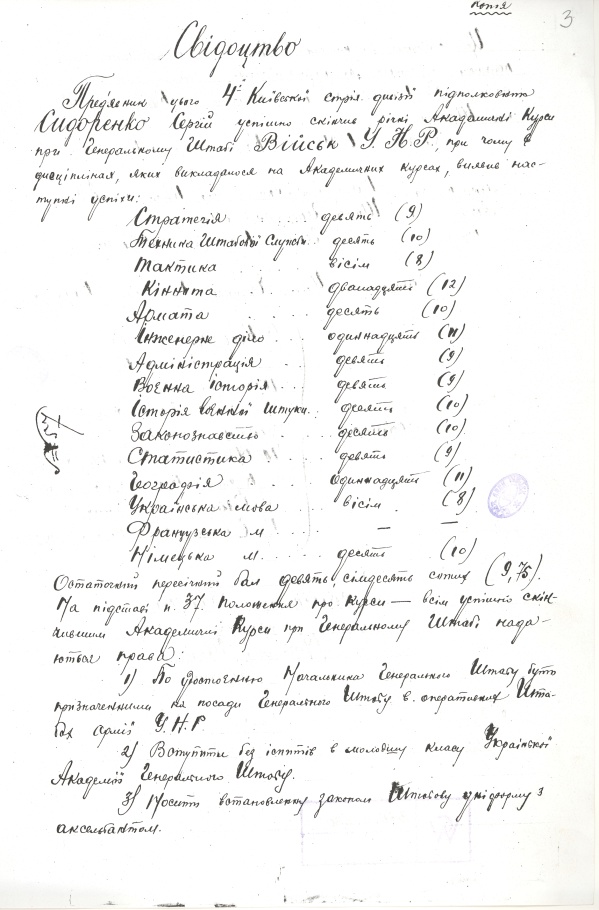 копія
3
Свідоцтво
Предявник цього 4ї Київської стріл. дивізії підполковник
Сидоренко Сергій успішно скінчив річні Академичні Курси
при Генеральному Штабі Військ У.Н.Р., при чому в
дисціплінах, яких викладалося на Академичних курсах, виявив нас-
тупні успіхи:
Стратегія . . . . девять (9)
Техника Штабової Служби . десять (10)
Тактика . . . . вісім (8)
Кіннота . . . . дванадцять (12)
Армата . . . . десять (10)
Інженерне діло . . . одиннадцять (11)
Адміністрація . . . девять (9)
Военна історія . . . девять (9)
Історія военної штуки . . десять (10)
Законознавство . . . десять (10)
Статистика . . . . девять (9)
Географія . . . . одиннадцять (11)
Українська мова . . . вісім (8)
Французська м . . . — —
Німецька м. . . . десять (10)
Остаточний пересічний бал девять, сімдесять сотих (9,75).
На підставі п. 37 Положення про Курси — всім успішно скін-
чившим Академичні Курси при Генеральному Штабі нада-
ються права:
1) По удостоенню Начальника Генерального Штабу бути
призначенними на посади Генерального Штабу в оперативних Шта-
бах армії У.Н.Р
2) Вступити без іспитів в молодшу класу Української
Академії Генерального Штабу.
3) Носити встановленну законом Штабову уніформу з
аксельбантом.